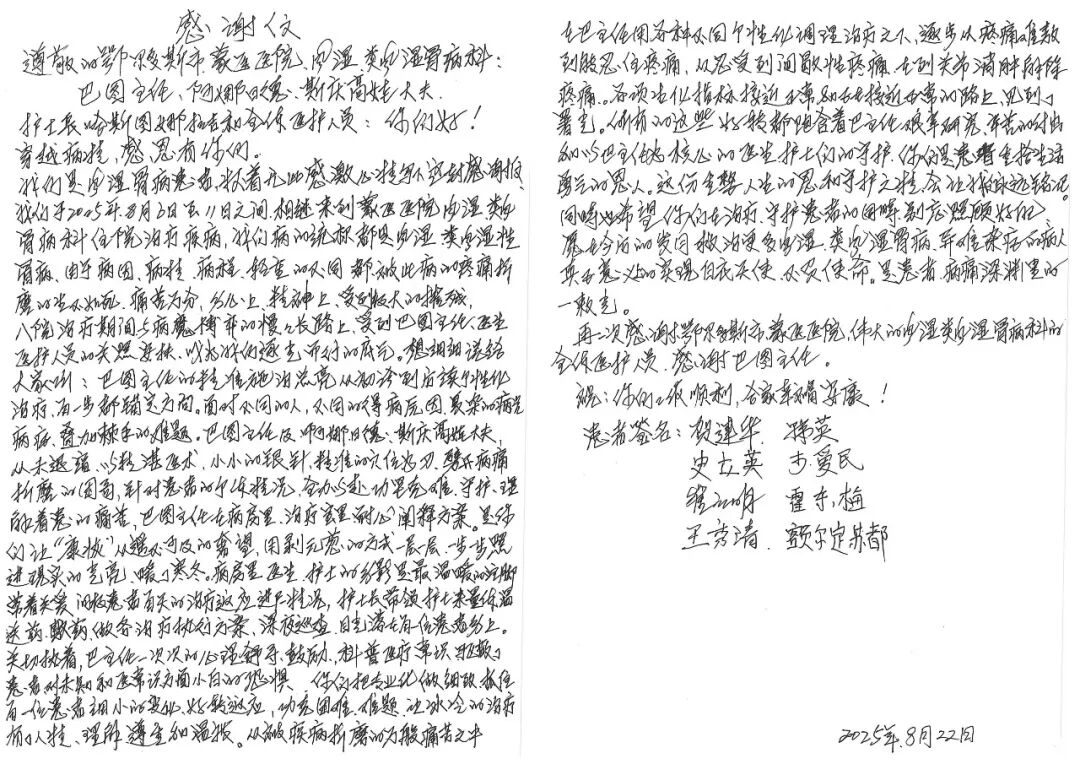 感谢信
尊敬的鄂尔多斯市蒙医医院风湿、类风湿骨病科：
巴图主任、阿娜日德、斯庆高娃大夫、
护士长哈斯图娜拉吉和全体医护人员：你们好！
穿越病蛀，感恩有你们。
我们是风湿骨病患者，怀着无比感激心情写下这封感谢报。
我们于2025年8月2日至11日之间，相继来到蒙医医院风湿、类风
骨病科住院治疗疾病，我们病的统称都是风湿、类风湿性
骨病，由于病因、病情、病程、轻重的不同都被此病的疼痛折
磨的生不如死，痛苦万分，身心上、精神上受到极大的摧残，
入院治疗期间与病魔搏弈的慢慢长路上，受到巴图主任、医生
医护人员的关照、搀扶，成为我们逐光而行的底气。想细细说给
大家听：巴图主任的精准施治总亮从初诊到后续个性化
治疗，每一步都锚定方向。面对不同的人，不同的得病原因，复杂的病先
病症、叠加棘手的难题。巴图主任及阿娜日德、斯庆高娃大夫，
从未退缩，以精湛医术，小小的银针，精准的穴位为刃，劈开病痛
折磨的困局，针对患者的个体情况，全力以赴功克难，守护、理
解着患者的痛苦，巴图主任在病房里、治疗室里耐心阐释方案。是你
们让“康复”从遥不可及的奢望，用剥冗葱的方式一层层、一步步照
进现实的光亮，暖了寒冬。病房里医生、护士的身影是最温暖的注脚
带着关爱，问候患者每天的治疗反应进展情况，护士长带领护士来量体温
送药、敷药，做各治疗执行方案，深夜巡查，目光落在每一位患者身上。
关切执着，巴主任一次次的心理疏导、鼓励、科普医疗常识驱散了
患者对未知和医常识方面小白的恐惧，你们把专业化做细致，抓住
每一位患者细小的变化，好转反应，功克困难、难题，让冰冷的治疗
有了人情、理解、尊重和温度。从被疾病折磨的万般痛苦之中
在巴主任用各种不同个性化调理治疗之下，逐步从疼痛难熬
到能忍住疼痛，从忍受到间歇性疼痛，在到关节消肿解除
疼痛。各项生化指标接近正常和在在接近正常的路上，见到了
曙光。所有的这些好转都饱含着巴主任艰辛研究，辛苦的付出
和以巴主任为核心的医生护士们的守护，你们是患者重拾生活
勇气的恩人。这份重塑人生的恩和守护之情，会让我们永远铭记。
同时也希望你们在治疗、守护患者的同时，剥应照顾好自己，
愿在今后的岁月救治更多风湿、类风湿骨病、车难杂症的病人
真正意义的实现白衣天使，不负使命。是患者病痛深渊里的
一数光。
再一次感谢鄂尔多斯市蒙医医院，伟大的风湿类风湿骨病科的
全体医护人员，感谢巴图主任。
祝：你们工作顺利，各家幸福安康！
患者签名：贺建华 韩英
史立英 步爱民
霍东梅
王秀清 额尔定苏都
2025年8月22日